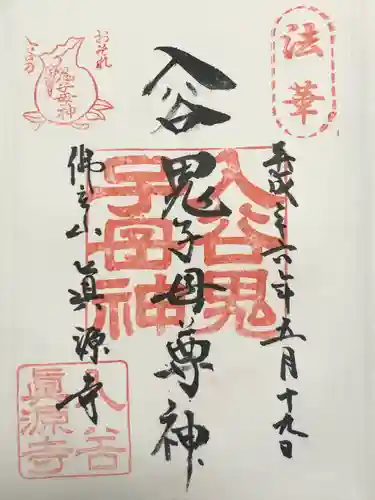 法華
おそれ
入谷の
鬼子母神
平成二十六年五月十九日
入谷鬼子母尊神
佛立山眞源寺
入谷鬼
子母神
入谷
眞源寺